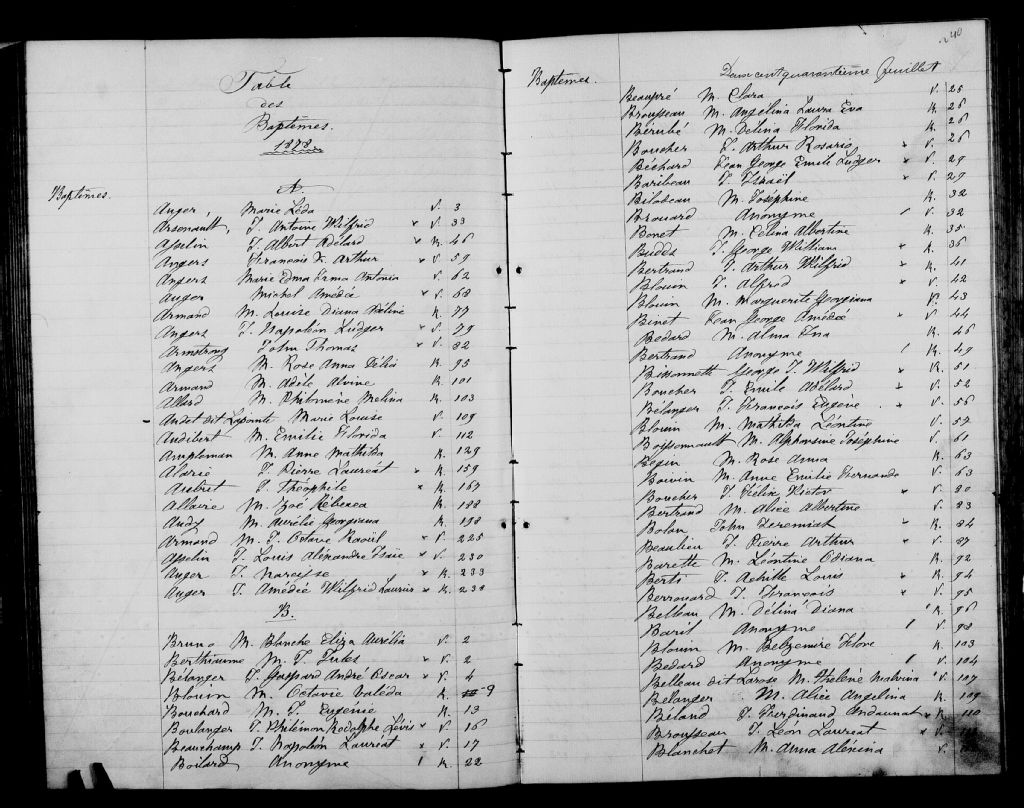 Table
des
Baptêmes.
1878.
Baptêmes.
A.
Anger, Marie Léda V. 3
Arsenault, J. Antoine Wilfrid × V. 33
Asselin J. Albert Adélard × R. 46
Angers François X. Arthur × V. 59
Angers Marie Edma Erma Antonia V. 62
Auger Michel Amédé × V. 68
Armand M. Louise Diana Adéline R. 77
Angers J. Napoléon Ludger × V. 79
Armstrong John Thomas × V. 82
Angers M. Rose Anna Délia R. 95
Armand M. Adèle Alvine R. 101
Allard M. Philomène Melina R. 103
Audet dit Lapointe Marie Louise V. 109
Audibert M. Emilie Florida V. 112
Ampleman M. Anne Mathilda R. 129
Alarie J. Pierre Lauréat × R. 159
Aubret J. Théophile × R. 167
Allaire M. Zoé Rébecca R. 188
Audy M. Aurélie Georgiana R. 198
Armand M. J. Octave Raoül × V. 225
Asselin J. Louis Alexandre Isaïe × V. 230
Auger J. Narcisse × R. 233
Auger J. Amédée Wilfrid Laurier × R. 238
B.
Bruno M. Blanche Eliza Aurélia V. 2
Berthiaume M. J. Jules × V. 2
Bélanger J. Gaspard André Oscar × V. 4
Blouin M. Octavie Valéda R. 9
Bouchard M. J. Eugénie R. 13
Boulanger J. Philémon Rodolphe Lévis × V. 16
Beauchamp J. Napoléon Lauréat × V. 17
Boilard Anonyme 1 R. 22
240
Deux cent quarantième feuillet
Baptêmes.
Beaupré M. Clara V. 25
Brousseau M. Angelina Laura Eva R. 26
Bérubé M. Delina Florida R. 26
Boucher J. Arthur Rosario × V. 26
Béchard Jean George Emile Ludger × V. 29
Baribeau J. Israël × V. 29
Bilodeau M. Joséphine R. 32
Brouard Anonyme 1 V. 32
Bonet M. Celina Albertine R. 35
Budds J. George William × R. 36
Bertrand J. Arthur Wilfrid × R. 41
Blouin J. Alfred × V. 42
Blouin M. Marguerite Georgiana V. 43
Binet Jean George Amédé × V. 44
Bedard M. Alma Ena R. 46
Bertrand Anonyme 1 R. 49
Bissonnette George J. Wilfrid × R. 51
Boucher J. Emile Adélard × V. 52
Belanger J. François Eugène × V. 56
Blouin M. Mathilda Léontine V. 57
Boissonnault M. Alphonsine Joséphine V. 61
Begin M. Rose Anna R. 63
Boivin M. Anne Emilie Fernande V. 63
Boucher J. Félix Victor × V. 80
Bertrand M. Alice Albertine V. 83
Bolan John Jeremiah × R. 84
Beaulieu J. Pierre Arthur × V. 87
Barette M. Léontine Odiana R. 92
Berti J. Achille Louis × R. 94
Berrouard J. François × V. 95
Belleau M. Délina Diana R. 96
Baril Anonyme 1 V. 98
Blouin M. Belzemire Flore R. 103
Bedard Anonyme 1 V. 104
Belleau dit Larose M. Hélène Malvina V. 107
Belanger M. Alice Angelina R. 109
Béland J. Ferdinand × R. 110
Brousseau J. Léon Lauréat × V.
Blanchet M. Anna Alexina V.